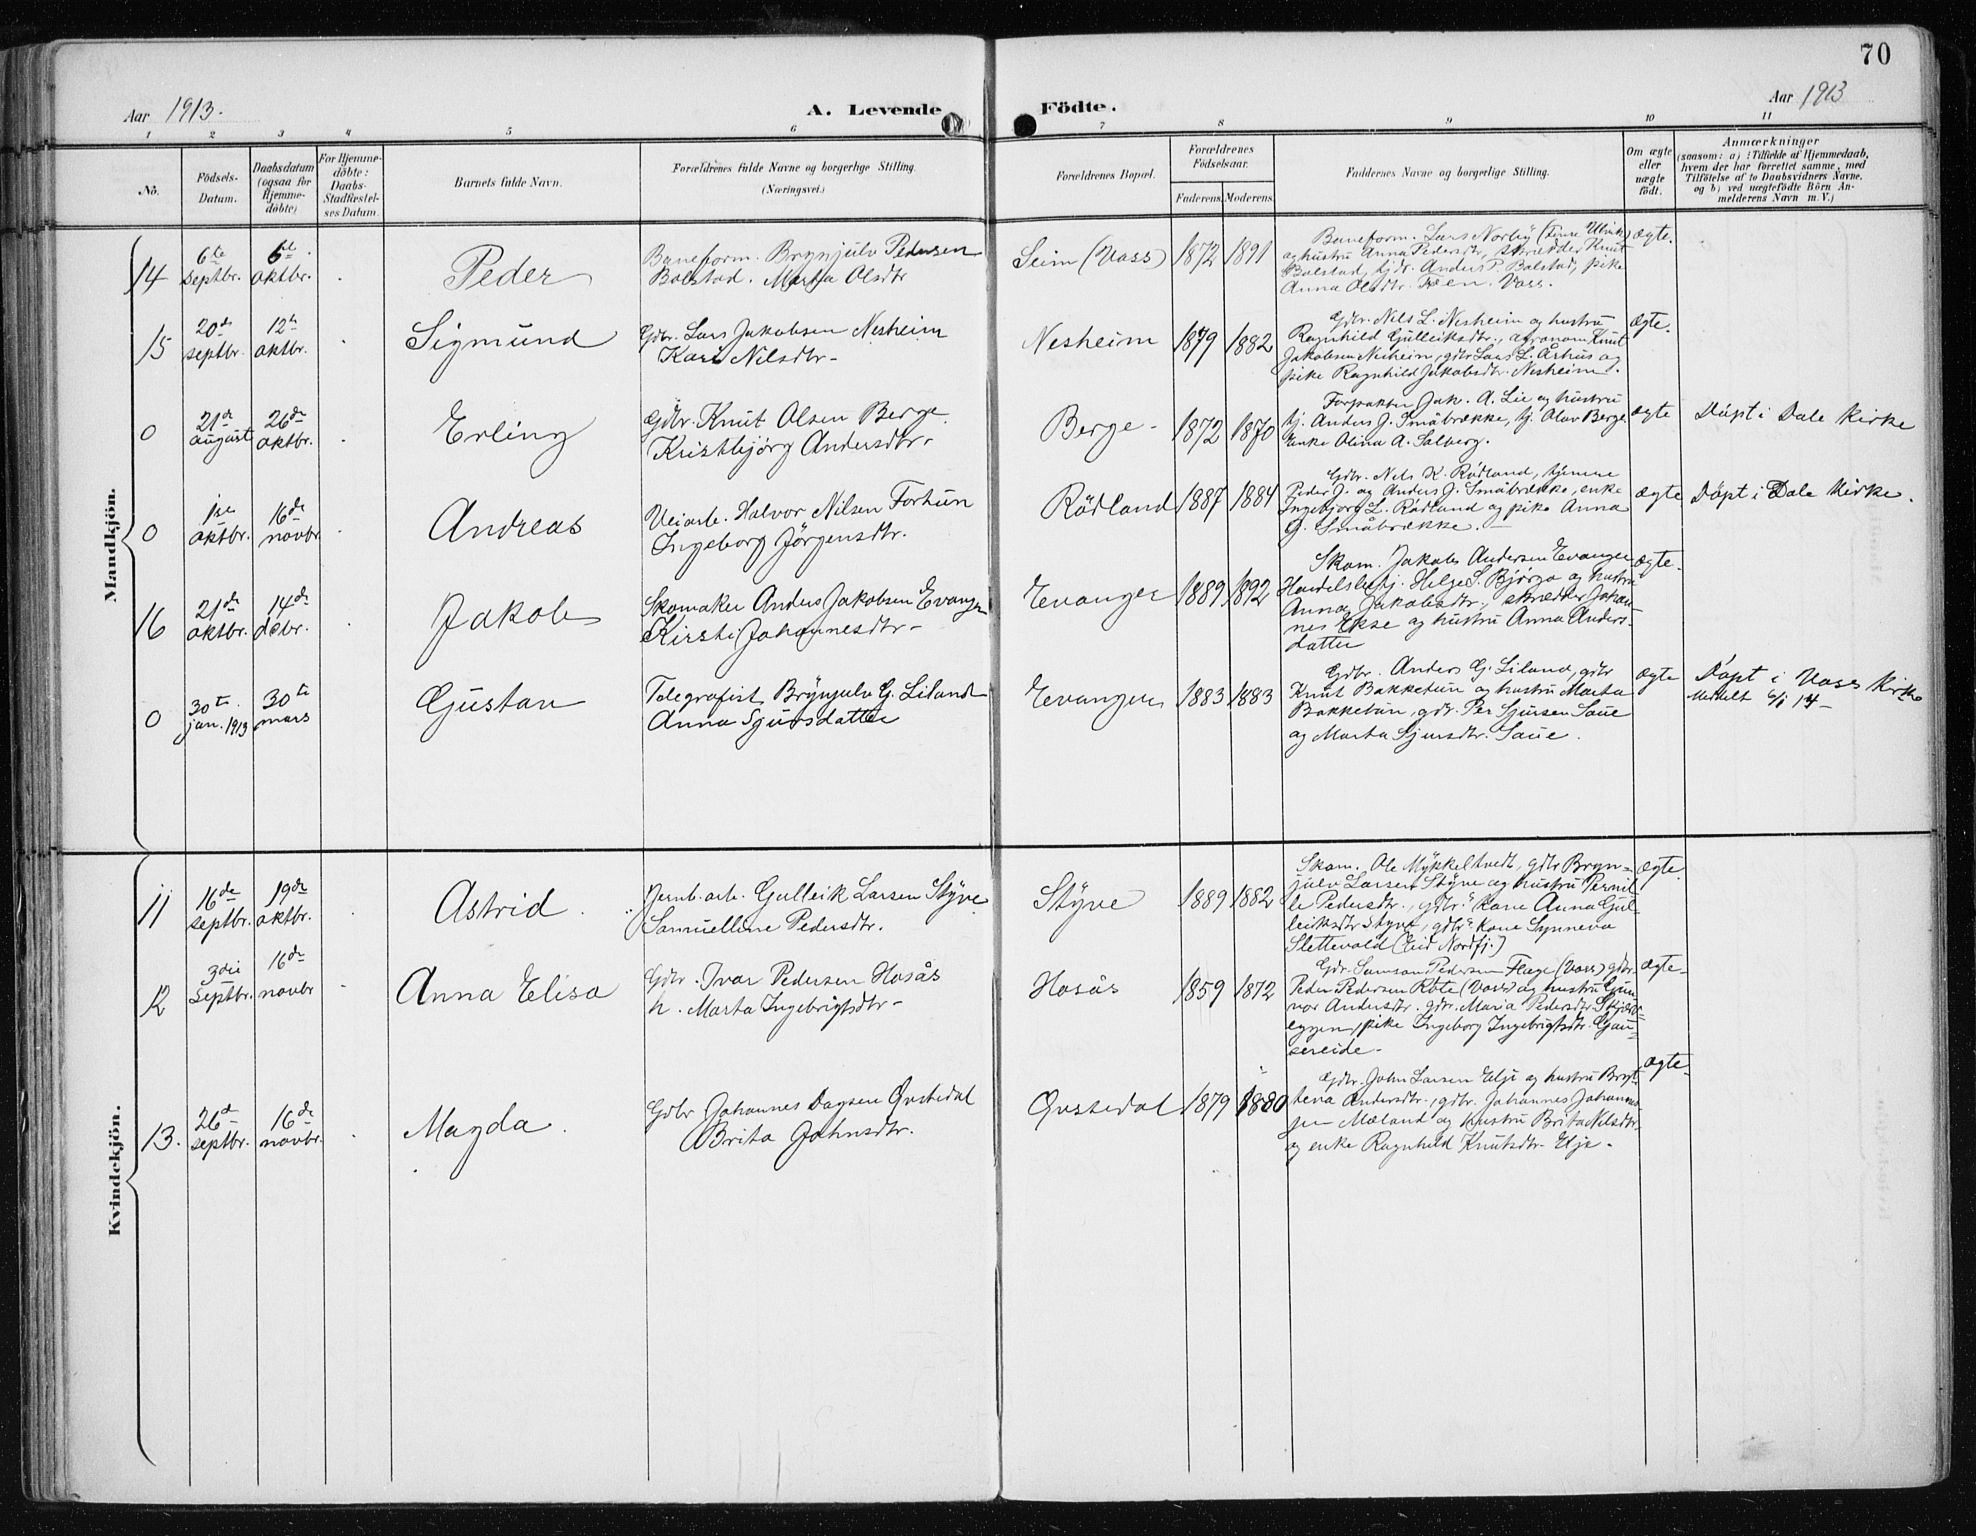 70
Aar 1913.
A. Levende
Födte.
Aar 1913
1 2 3 4 5 6 7 8 9 10 11
No.
Födsels-
Datum.
Daabsdatum
(ogsaa for
Hjemme-
döbte)
For Hjemme-
döbte:
Daabs-
Stadfæstel-
ses Datum.
Barnets fulde Navn.
Forældrenes fulde Navne og borgerlige Stilling.
(Næringsvei.)
Forældrenes Bopæl.
Forældrenes
Födselsaar.
Faderens. Moderens.
Faddernes Navne og borgerlige Stilling.
Om ægte
eller
uægte
födt.
Anmærkninger
(saasom: a) i Tilfælde af Hjemmedaab,
hvem der har forrettet samme, med
Tilföielse af to Daabsvidners Navne,
og b) ved uægtefödte Börn An-
melderens Navn m. V.)
Mandkjön.
14
6te
septbr.
oktbr.
Peder
Baneform. Brynjulv Pedersen
Bolstad. Marta Olsdtr
Seim (Voss)
1872 1891
Baneform. Lars Norby
og hustru Anna Pedersdtr, skrædder Knut
Bolstad, tj.dr. Anders P. Bolstad, pike
Anna Olsdtr. Voss.
ægte.
15
20de
septbr.
12te
oktbr.
Sigmund
Gdbr. Lars Jakobsen Nesheim
Kari Nilsdtr-
Nesheim
1879 1882
Gdbr. Nils L. Nesheim og hustru
Ragnhild Gulleiksdtr., agronom Knut
Jakobsen Nesheim, gdbr Lars L. Århus og
pike Ragnhild Jakobsdtr. Nesheim.
ægte.
0
21de
august
26de
oktbr.
Erling
Gdbr. Knut Olsen Berge
Kristbjörg Andersdtr-
Berge-
1872 1870
Forpakter Jak. A. Lie og hustru
tj. Anders J. Småbrække, tj. Olav Berge
Enke Olina A. Solberg.
ægte
Döpt i Dale Kirke
0
1ste
oktbr.
16de
novbr
Andreas
Veiarb. Halvor Nilsen Forhun
Ingeborg Jörgensdtr.
Rödland
1887 1884
Gdbr. Nils K. Rödland, tjenere
Peder J. og Anders J. Småbrække, enke
Ingebjorg L. Rödland og pike Anna
G. Småbrække.
ægte
Döpt i Dale Kirke.
16
21de
oktbr.
14de
debr.
Jakob
Skomaker Anders Jakobsen Evanger
Kirsti Johannesdtr-
Evanger
1889 1892
Skom. Jakob Andersen Evanger
Handelsbetj. Helge S. Bjørgo og hustru
Anna Jakobsdtr., skrædder Johan-
nes Ekse og hustru Anna Anders-
datter
ægte.
0
30te
jan. 1913
30te
mars
Gustav
Telegrafist Brynjulv G. Liland
Anna Sjursdatter
Evanger
1883 1883
Gdbr. Anders G. Liland, gdbr
Knut Bakketun og hustru Marta
Bakketun, gdr. Per Sjursen Saue
og Marta Sjursdtr. Saue.
ægte
Döpt i Voss Kirke
Meldt 6/1 14-
Kvindekjön.
11
16de
septbr.
19de
oktbr.
Astrid
Jernb.arb. Gulleik Larsen Styve
Samuelline Pedersdtr.
Styve
1889 1882
Skom. Ole Mykkeltvedt, gdbr Bryn-
julv Larsen Styve og hustru Pernil-
le Pedersdtr., gdbr. kone Anna Gul-
leiksdtr Styve, gdbr kone Synneva
Slettevold (Eid Nordfj.)
ægte.
12
3die
septbr.
16de
novbr
Anna Elisa
Gdbr. Ivar Pedersen Hosås
h. Marta Ingebrigtsdtr-
Hosås
1859 1872
Gdr. Samson Pedersen Flage (Voss) gdbr
Peder Pedersen Röte (Voss) og hustru Gun-
vor Andersdtr. gdr. Maria Pedersdtr. Skjer-
eggen, pike Ingeborg Ingebrigtsdtr. Gau-
sereide-
ægte-
13.
26de
septbr.
16de
novbr.
Magda.
Gdbr Johannes Dagsen Qvitedal
Brita Johnsdtr.
Qvitedal
1879 1880
Gdbr. John Larsen Elje og hustru Bryt-
teva Andersdtr., gdbr. Johannes Johannes-
sen Mæland og hustru Brita Nilsdtr.
og enke Ragnhild Knutsdtr. Elje-
ægte-